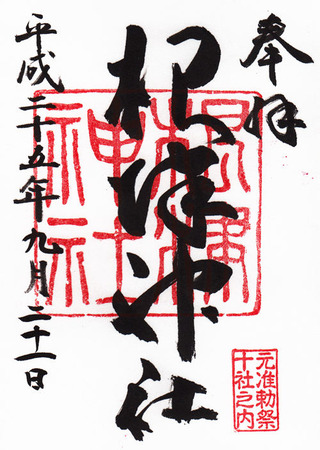 奉拝
根津神社
根津神社
元准勅祭
十社之内
平成二十五年九月二十一日